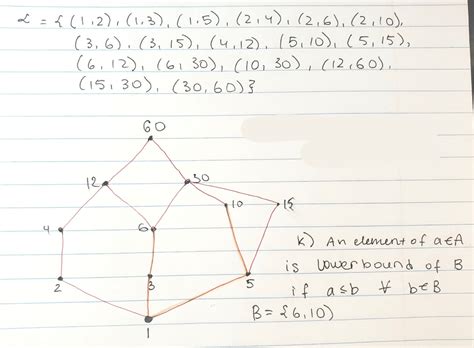 L = {(1,2), (1,3), (1,5), (2,4), (2,6), (2,10),
(3,6). (3,15), (4,12), (5,10), (5,15),
(6,12), (6,30), (10,30), (12,60),
(15,30), (30,60)}
60
12
30
10
15
4
6
2
3
5
1
k) An element of a∈A
is lower bound of B
if a≤b ∀ b∈B
B = {6,10)